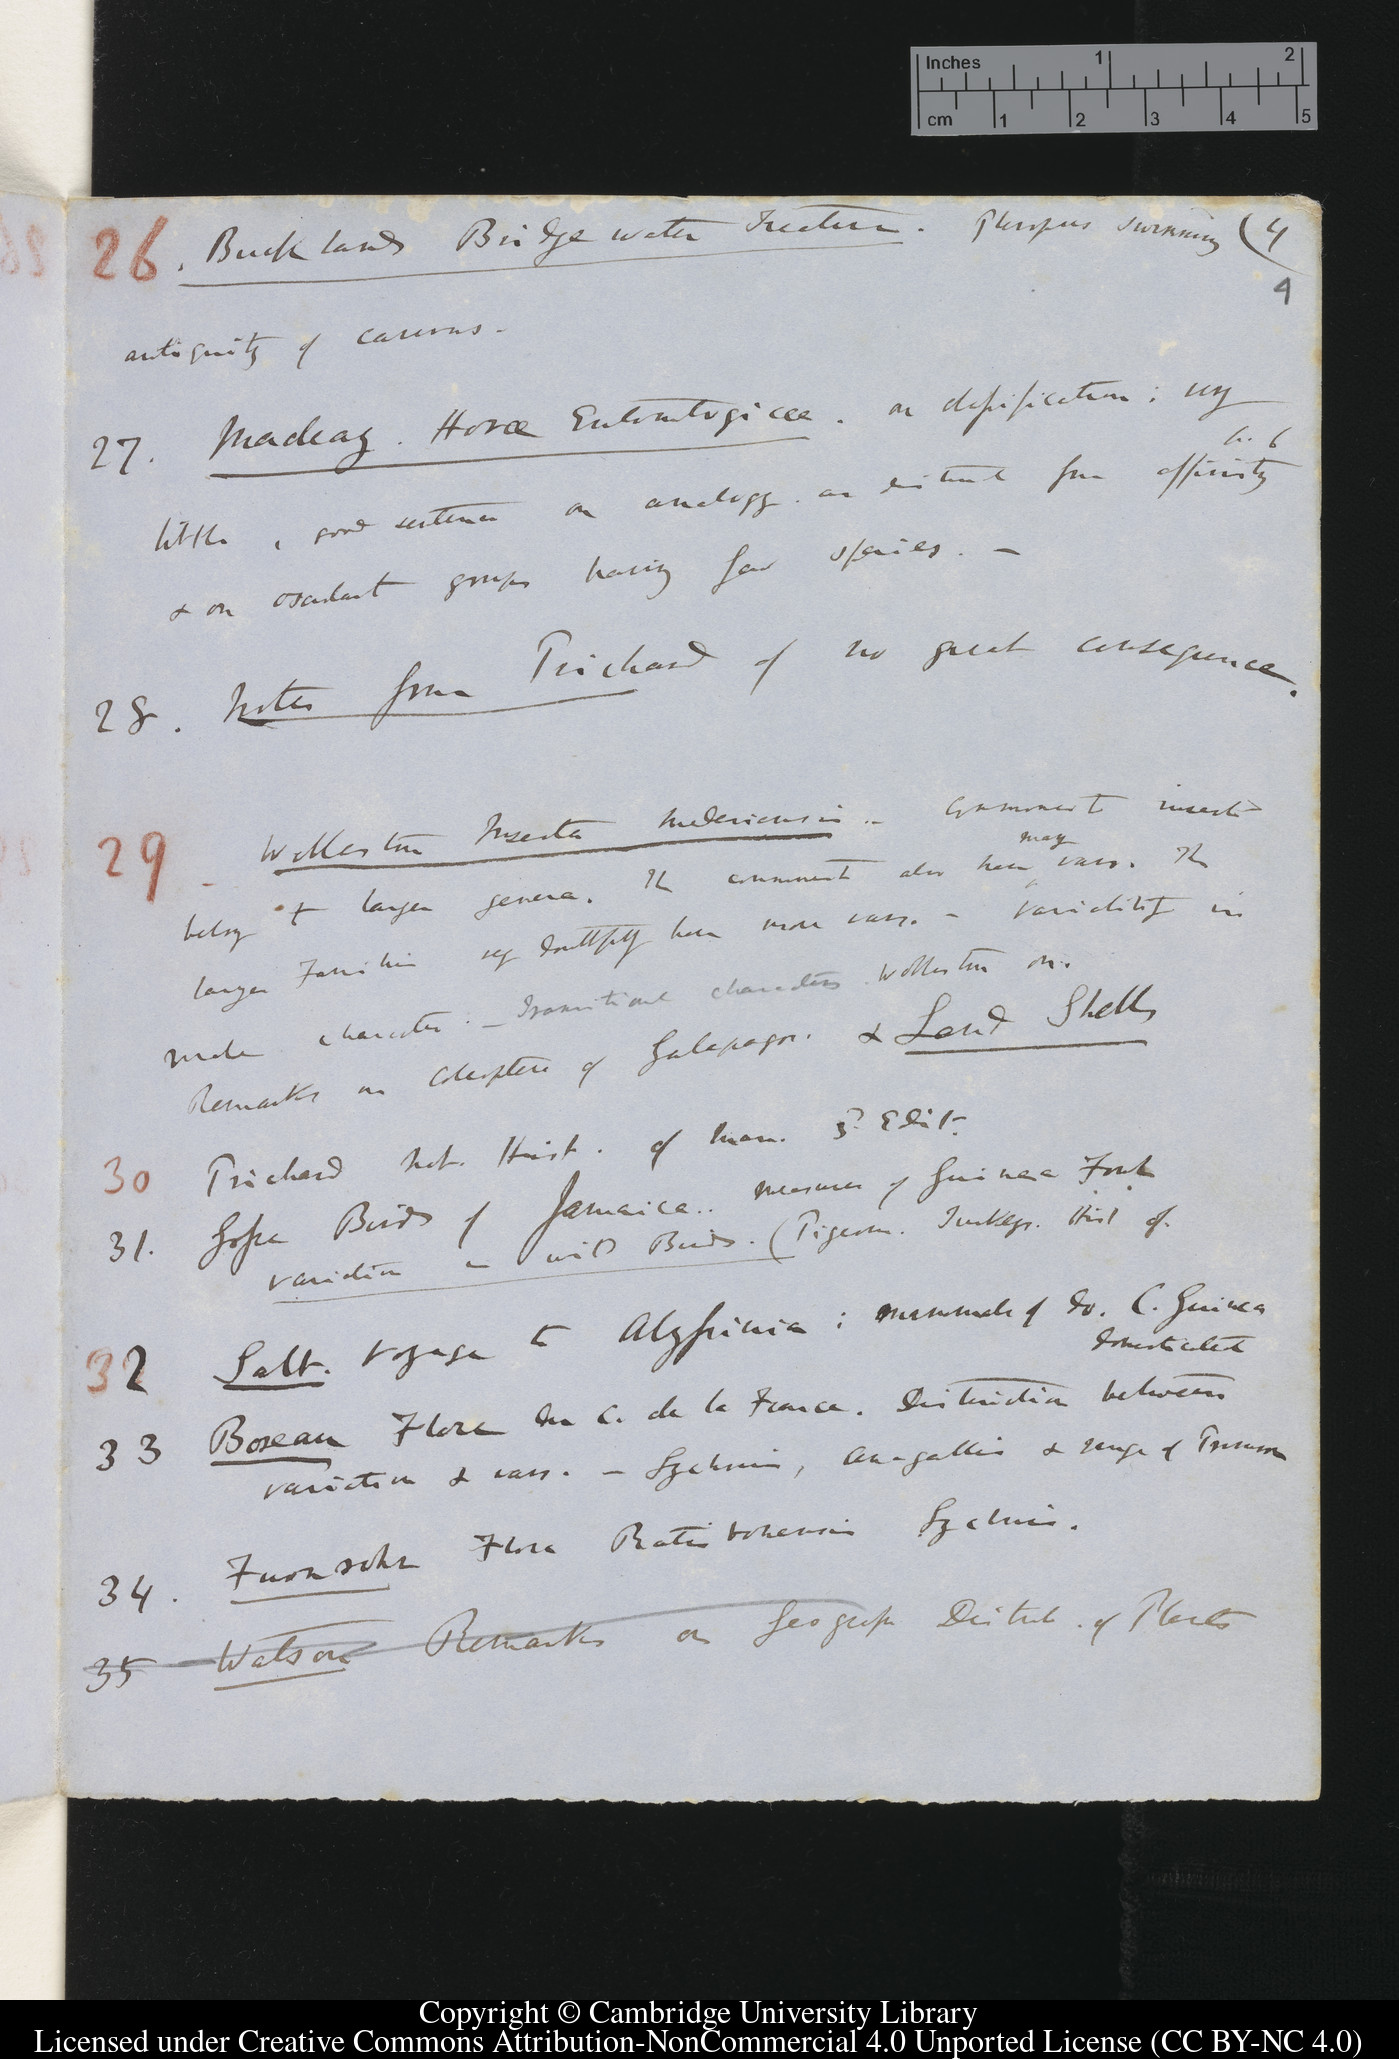 Inches 1 2
cm 1 2 3 4 5
26. Bucklands Bridgewater Treatise. Pteropus swimming (4
4
antiquity of caverns -
27. Macleay. Horæ Entomologicæ. on classification; very
little, good sentence on analogy as distinct from affinity
& on osculant groups having few species. —
28. Notes from Prichard of no great consequence.
29 - Wollaston Insecta Maderensia - commonest insects
may
belong to larger genera. The commonest also have vars. The
larger Families very doubtfully have more vars. - variability in
male character. - Transitional characters Wollaston on.
Remarks on Coleoptera of Galapagos. & Land Shells
30 Prichard Nat. Hist. of Man. 3d Edit.
31. Gosse Birds of Jamaica.. measures of Guinea Fowl
variation in wild Birds. (Pigeon. Turkeys. Hist of.
32 Salt. Voyage to Abyssinia; mammals of do. C. Guinea
domesticated
33 Boreau Flora du C. de la France. Distinction between
variation & vars. - Lychnis, Anagallis & range of Primroses
34. Fuernrohr Flora Ratisbonensis Lychnis.
35 Watson Remarks on Geograph Distrib. of Plants
Copyright © Cambridge University Library
Licensed under Creative Commons Attribution-NonCommercial 4.0 Unported License (CC BY-NC 4.0)